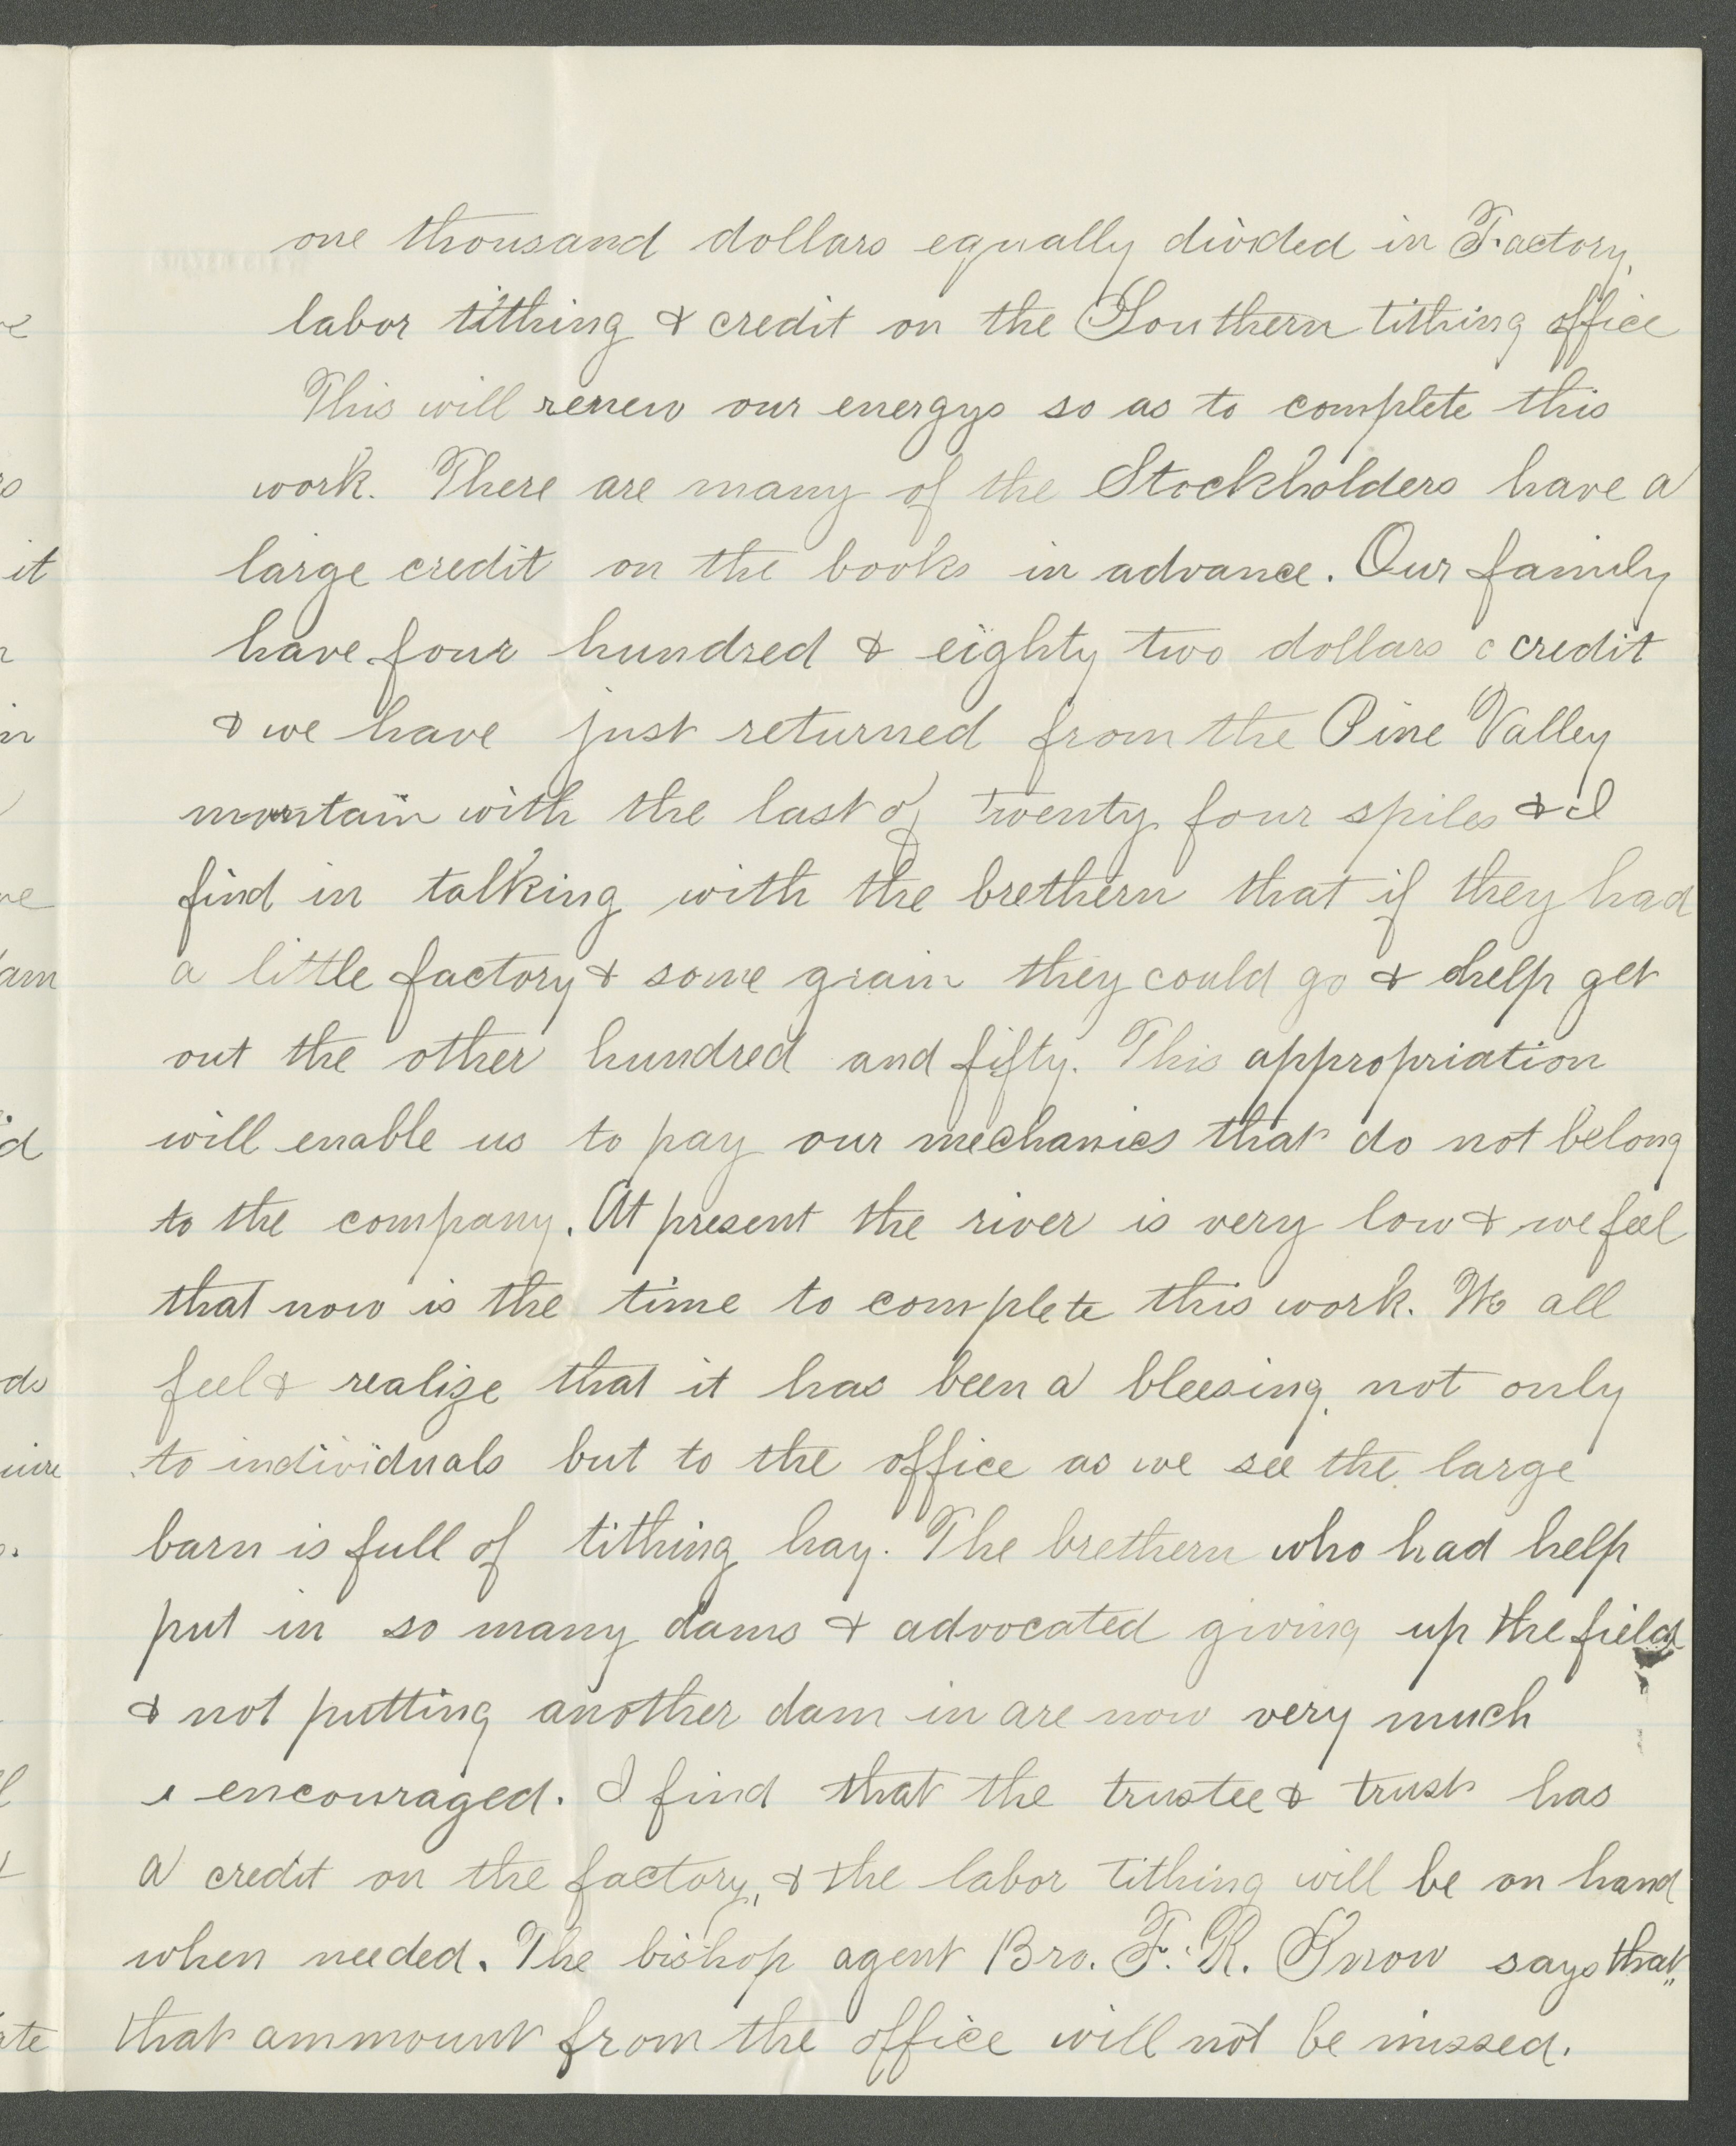 one thousand dollars equally divided in Factory,
labor tithing & credit on the Southern tithing office
This will renew our energys so as to complete this
work. There are many of the Stockholders have a
large credit on the books in advance. Our family
have four hundred & eighty two dollars c credit
& we have just returned from the Pine Valley
mountain with the last of twenty four spiles & I
find in talking with the brethern that if they had
a little factory & some grain they could go & help get
out the other hundred and fifty. This appropriation
will enable us to pay our mechanics that do not belong
to the company. At present the river is very low & we feel
that now is the time to complete this work. We all
feel & realize that it has been a bleesing, not only
to individuals but to the office as we see the large
barn is full of tithing hay. The brethern who had help
put in so many dams & advocated giving up the field
& not putting another dam in are now very much
encouraged. I find that the trustee & trust has
a credit on the factory, & the labor tithing will be on hand
when needed. The bishop agent Bro. F. R. Snow says that
that ammount from the office will not be missed.